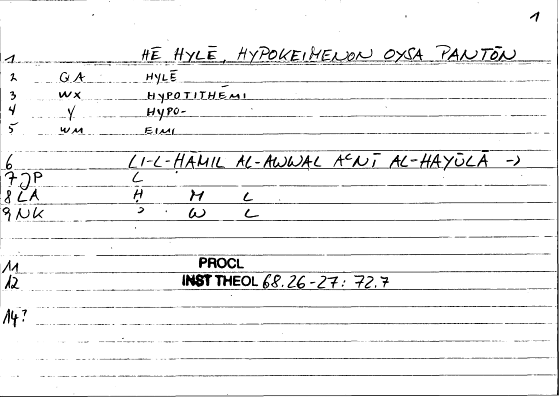 1
1 HĒ HYLĒ, HYPOKEIMENON OYSA PANTŌN
2 QA HYLĒ
3 WX HYPOTITHĒMI
4 Y HYPO-
5 WM EIMI
6 LI-L-HĀMIL AL-AWWAL AʿNĪ AL-HAYŪLĀ →
7 JP L
8 LA H M L
9 NK ʾ W L
11 PROCL
12 INST THEOL 68.26-27: 72.7
14?